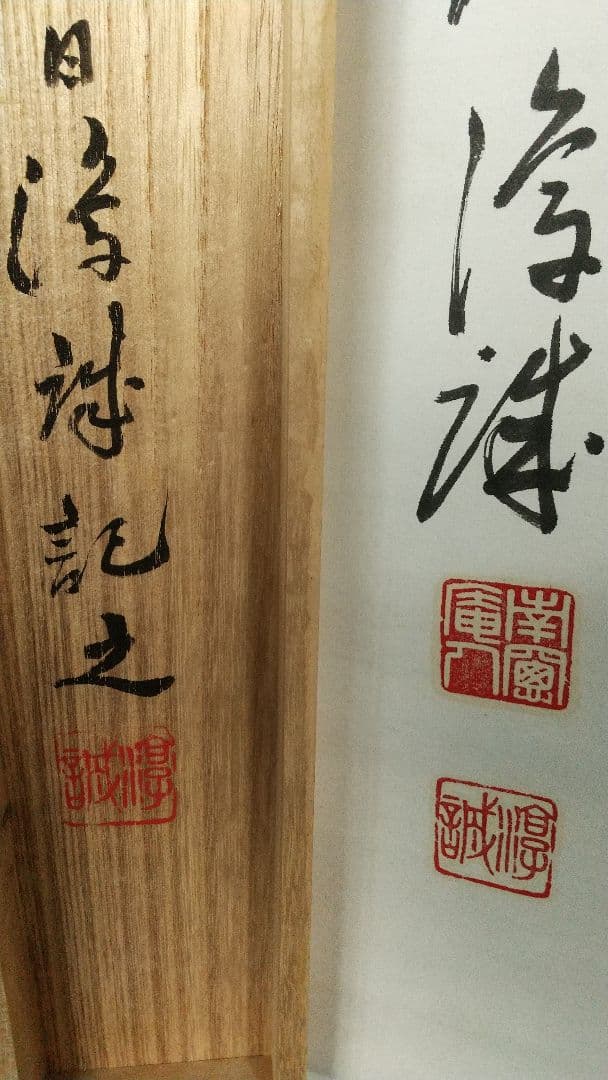 淳誠
南窗
庵人
淳誠
日淳誠記之
淳誠